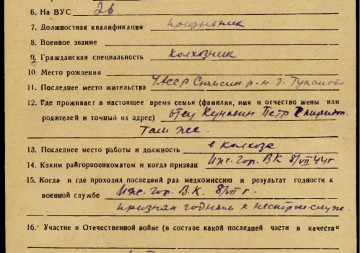 6. На ВУС 2в
7. Должностная квалификация
8. Военное звание
9. Гражданская специальность колхозник
10. Место рождения
11. Последнее место жительства
12. Где проживает в настоящее время семья (фамилия, имя и отчество жены или
родителей и точный их адрес) отец Петр
там же.
13. Последнее место работы и должность в колхозе
14. Каким райгорвоенкоматом и когда призван гор. ВК 8/VII 44 г
15. Когда и где проходил последний раз медкомиссию и результат годности к
военной службе гор. В.К. 8/VII г.
признан годным к нестр. служ.
16. Участие в Отечественной войне (в составе какой последней части и в качеств